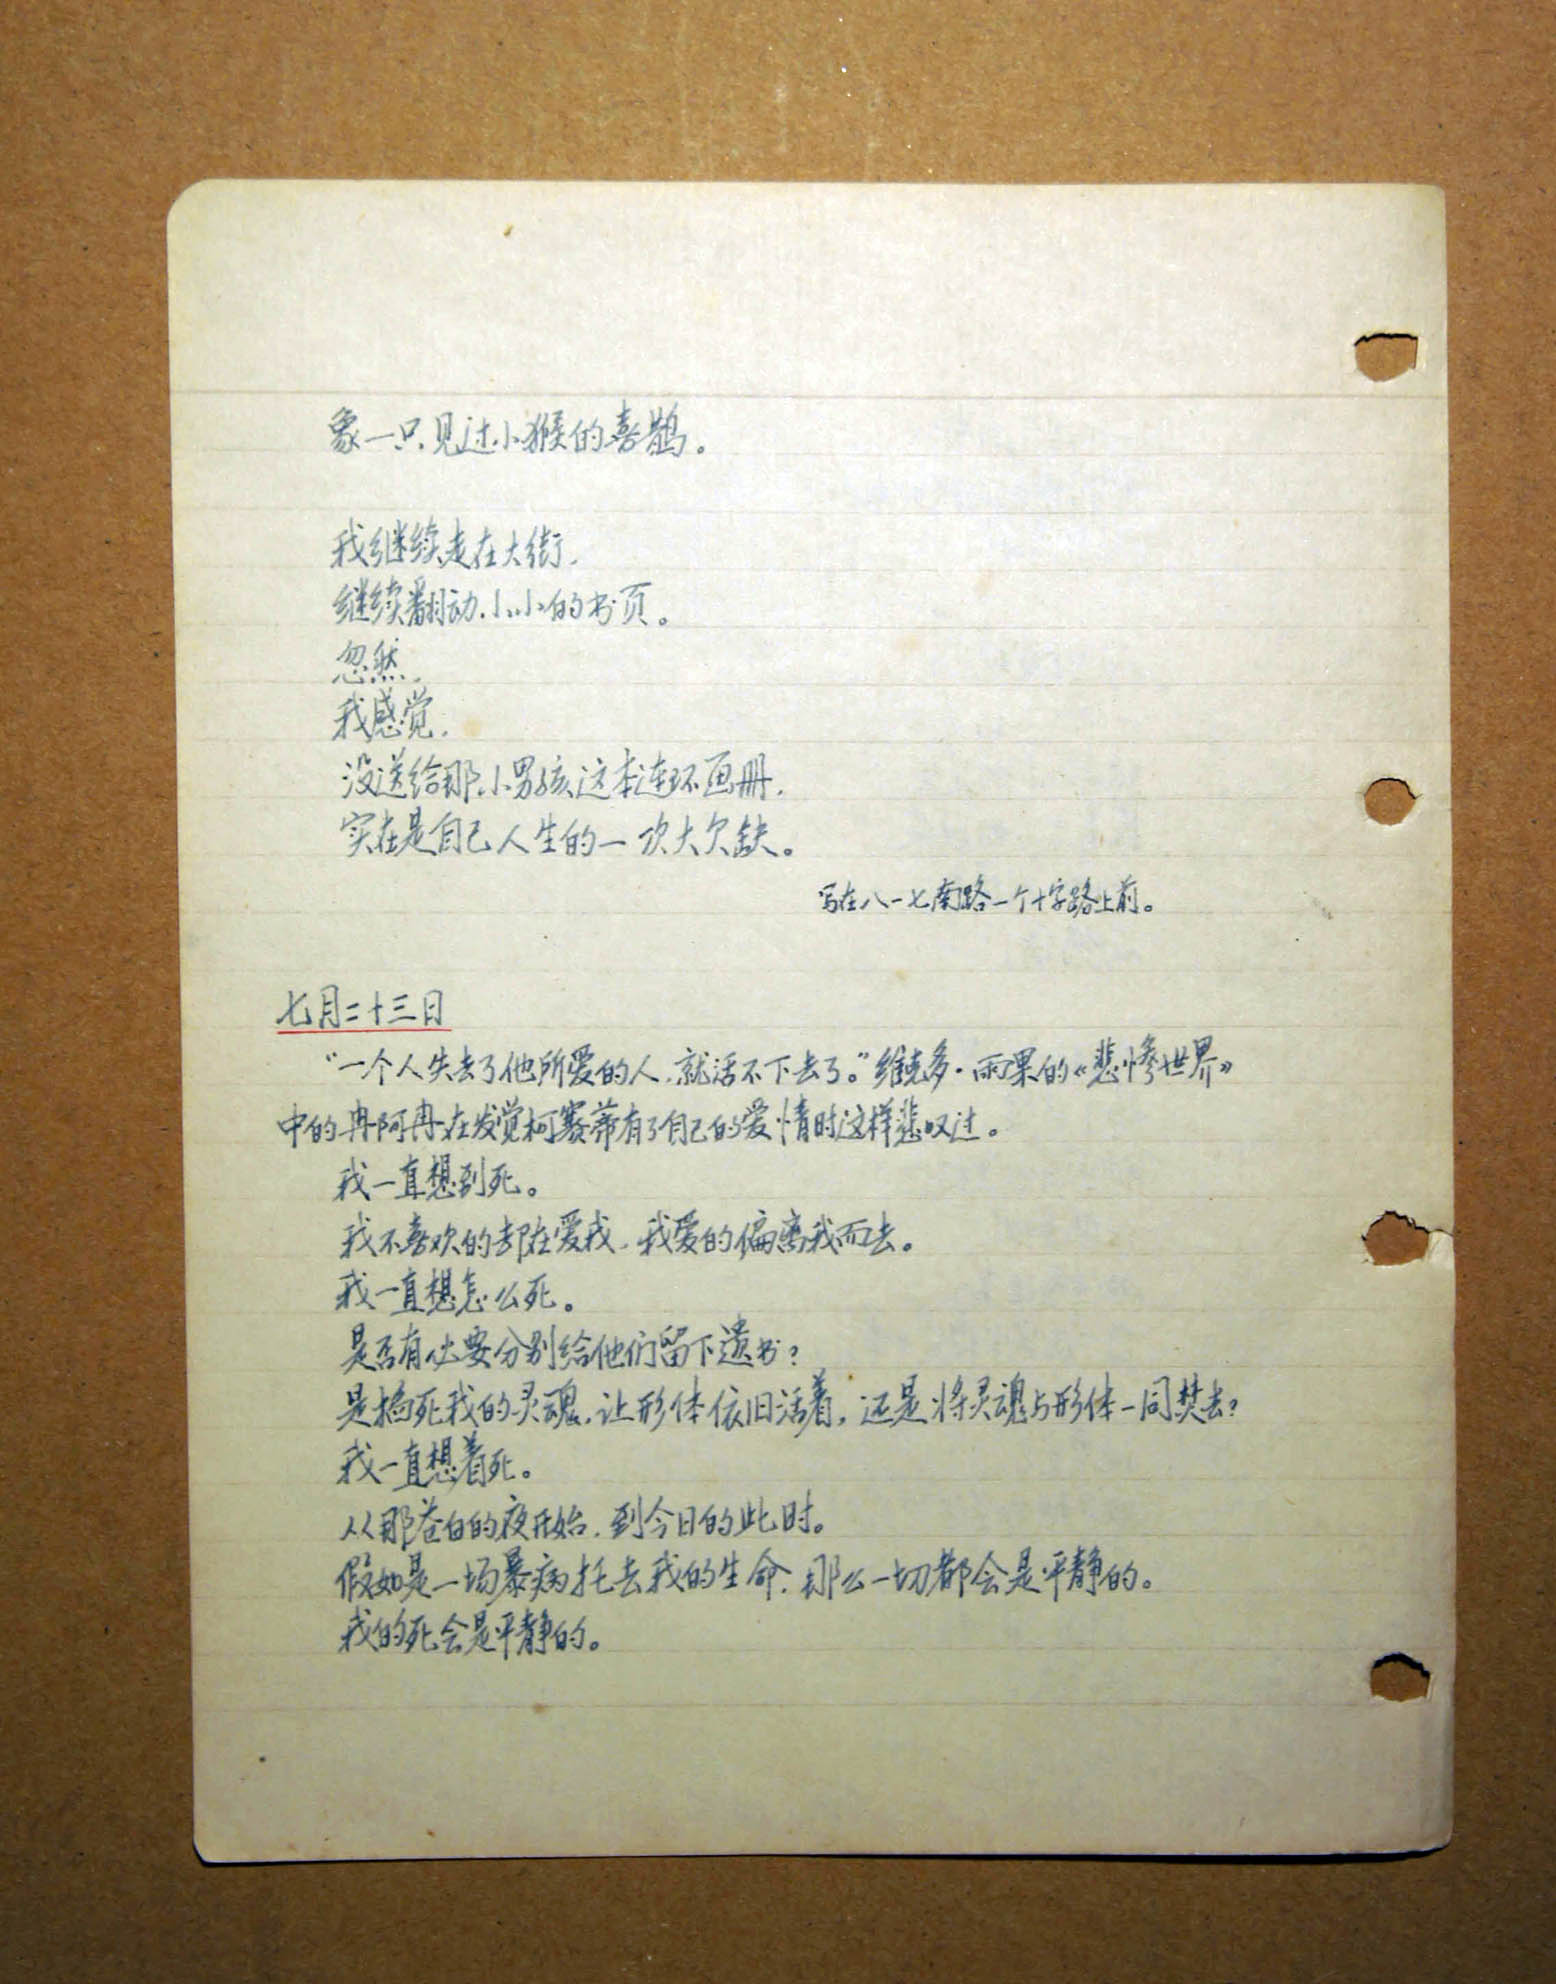 象一只见过小猴的喜鹊。
我继续走在大街，
继续翻动小小的书页。
忽然，
我感觉，
没送给那小男孩这本连环画册，
实在是自己人生的一次大欠缺。
写在八一七南路一个十字路上前。
七月二十三日
“一个人失去了他所爱的人，就活不下去了。”维克多·雨果的《悲惨世界》
中的冉阿冉在发觉柯赛蒂有了自己的爱情时这样悲叹过。
我一直想到死。
我不喜欢的都在爱我，我爱的偏离我而去。
我一直想怎么死。
是否有必要分别给他们留下遗书？
是掐死我的灵魂，让形体依旧活着，还是将灵魂与形体一同焚去？
我一直想着死。
从那苍白的夜开始，到今日的此时。
假如是一场暴病托去我的生命，那么一切都会是平静的。
我的死会是平静的。